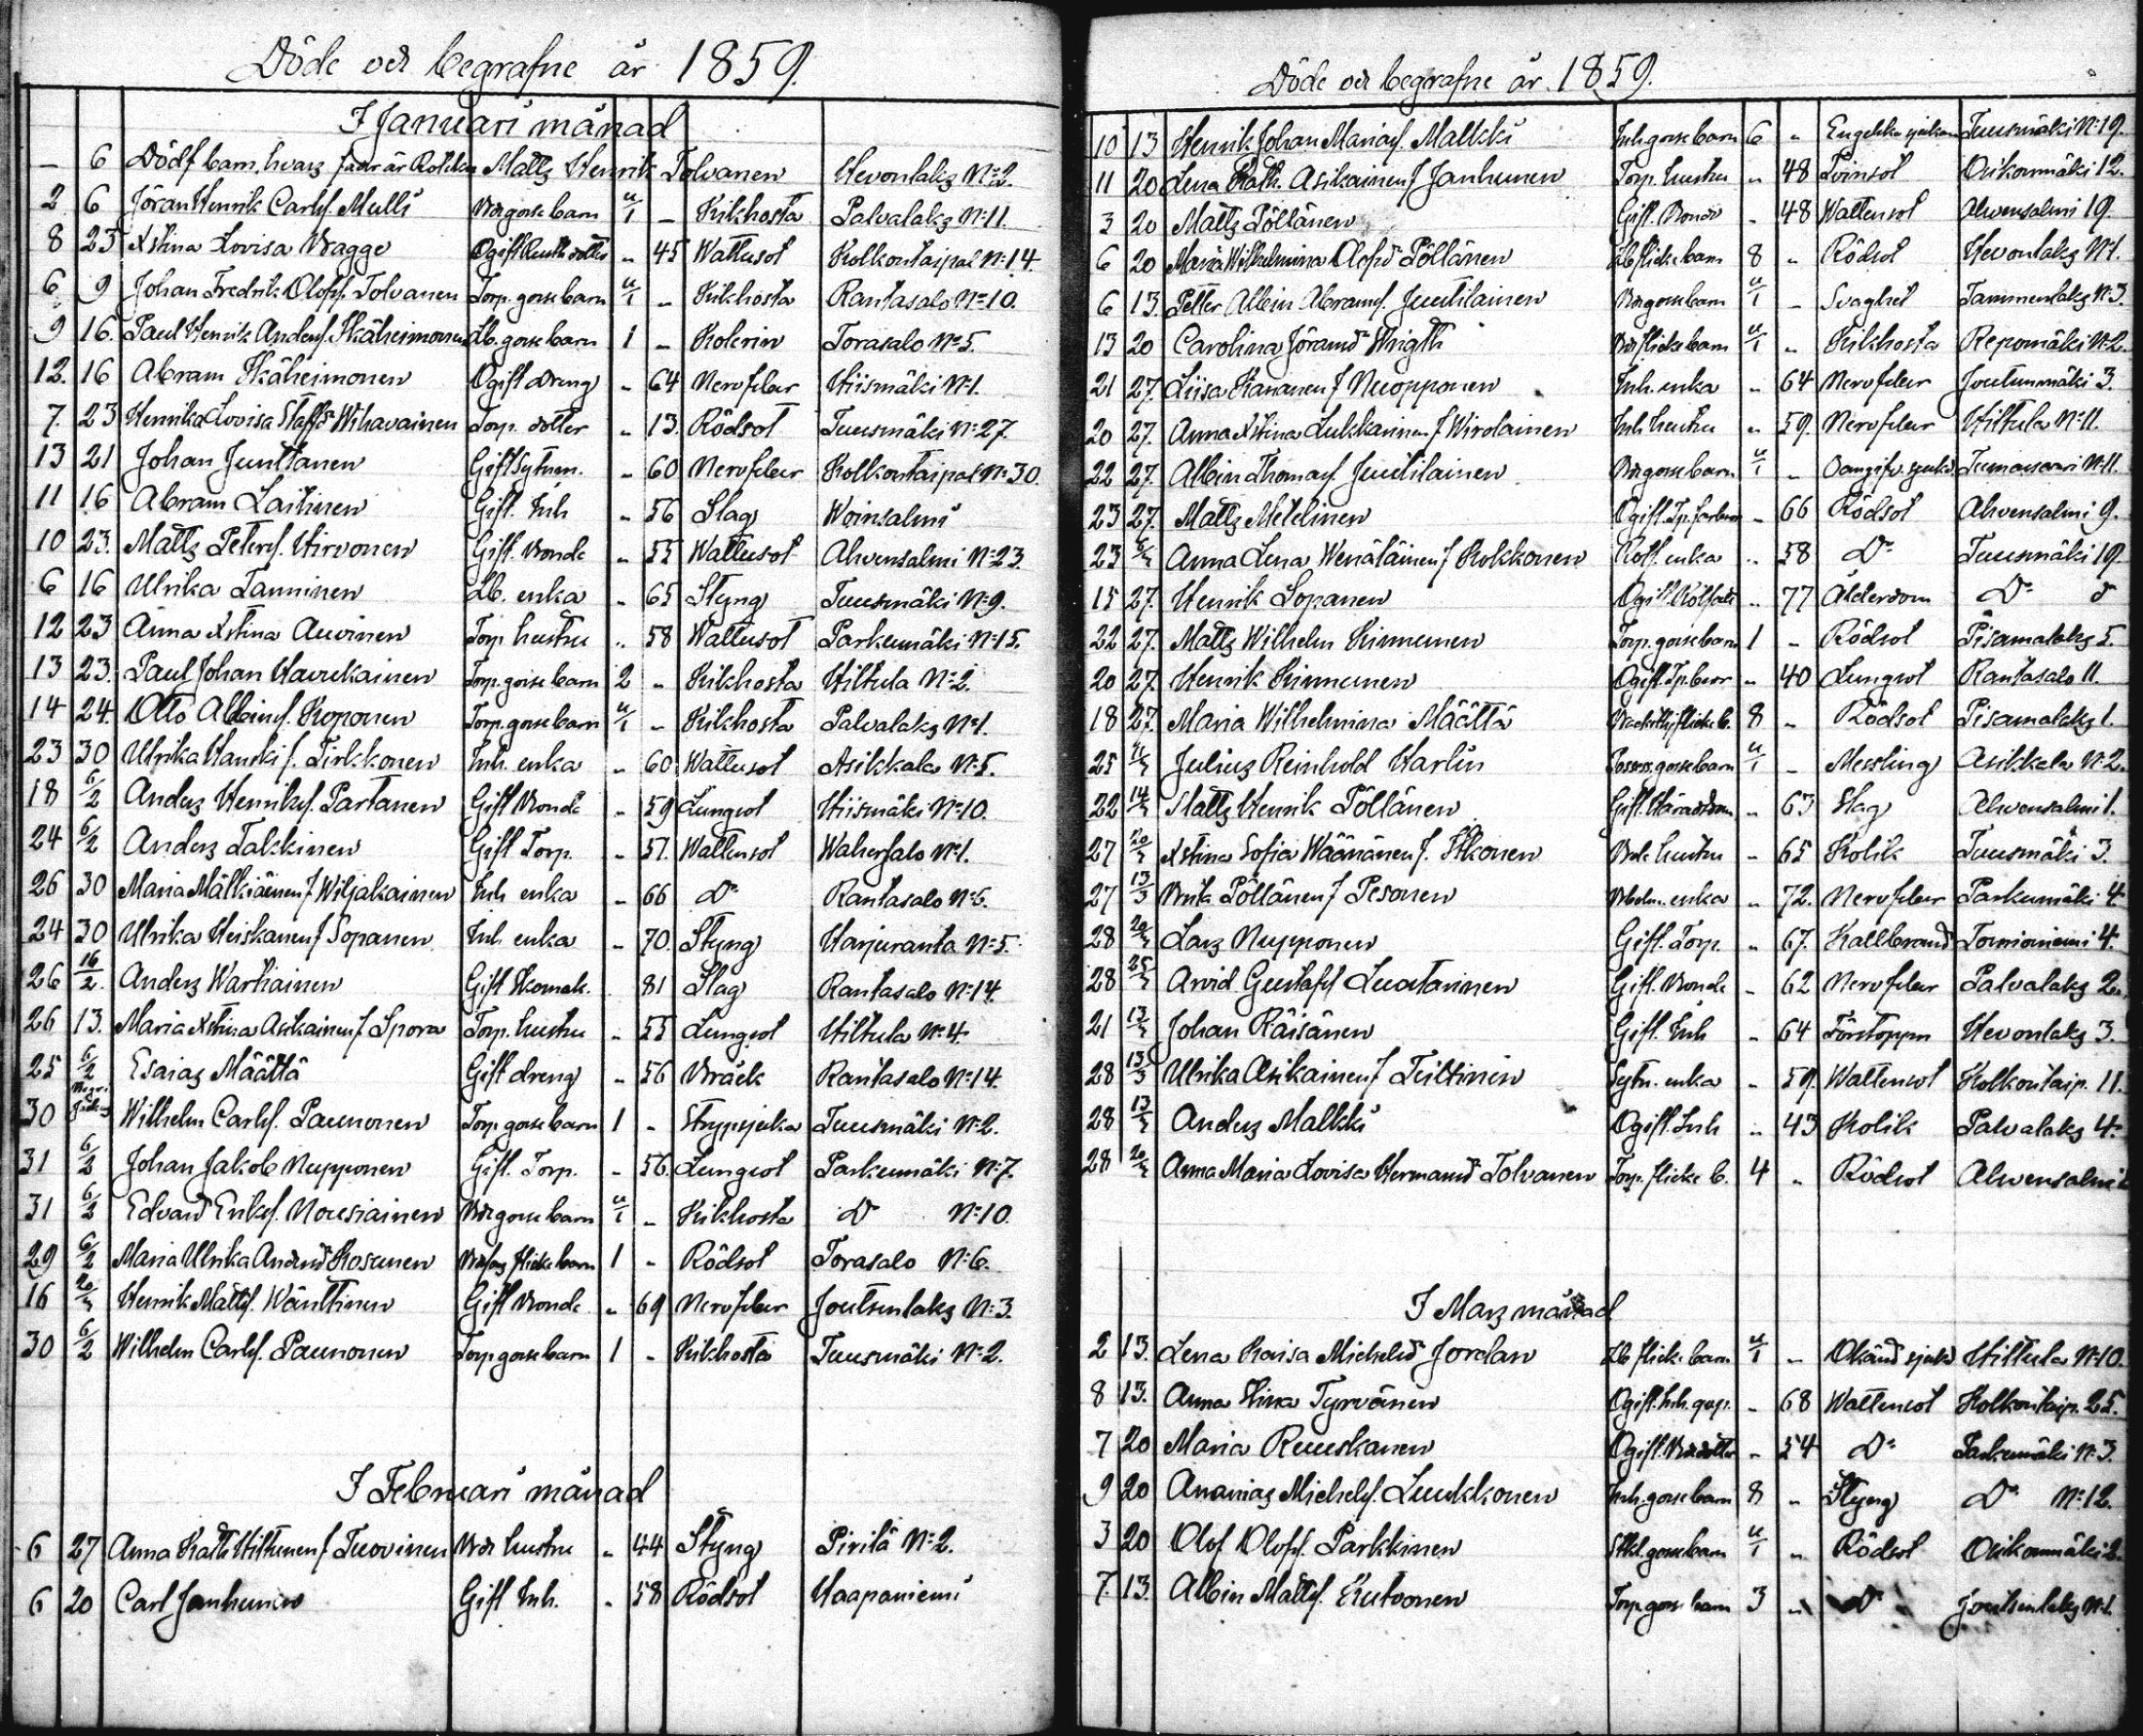 Döde och begrafne år 1859.
I Januari månad
— 6 Dödf barn, hvars fader är Mattz Henrik Tolvanen Hevonlakz No 2.
2 6 Jöran Henrik Carlsf. Mulli Bde gosse barn u/1 – Kikhosta Palvalakz N:11.
8 23 Xstina Lovisa Bragge Ogift dotter „ 45 Wattusot Kolkontaipal N:14
6 9 Johan Fredrik Olofsf. Tolvanen Torp. gosse barn u/1 – Kikhosta Rantasalo No 10.
9 16. Paul Henrik Andersf. Ikäheimonen Lb. gosse barn 1 – Kolerin Torasalo No 5.
12. 16 Abram Ikäheimonen Ogift dreng „ 64 Nervfeber Hiismäki N:1.
7. 23 Henrika Lovisa Staffsdr Wihavainen Torp. dotter „ 13. Rödsot Tuusmäki N:27.
13 21 Johan Junttanen Gift Sytnm. „ 60 Nervfeber Kolkontaipal N:30.
11 16 Abram Laitinen Gift. Inh „ 56 Slag Woinsalmi
10 23. Mattz Petersf. Hirvonen Gift. Bonde „ 55 Wattusot Ahvensalmi N:23.
6 16 Ulrika Tanninen Lb. enka „ 65 Styng Tuusmäki N:9.
12 23 Anna Xstina Auvinen Torp. hustru „ 58 Wattusot Parkumäki N:15.
13 23. Paul Johan Haurukainen Torp. gosse barn 2 „ Kikhosta Hiltula No 2.
14 24. Otto Albinsf. Koponen Torp. gosse barn u/1 – Kikhosta Palvalakz No 1.
23 30 Ulrika Hanski f. Pirkkonen Inh. enka „ 60 Wattusot Asikkala N:5.
18 6/2 Anderz Henriksf. Partanen Gift Bonde „ 59 Lungsot Hiismäki No 10.
24 6/2 Anderz Takkinen Gift Torp. „ 51. Wattensot Wahersalo N:1.
26 30 Maria Mälkiäinen f Wiljakainen Inh enka „ 66 Do Rantasalo N:6.
24 30 Ulrika Heiskanen f Sopanen Inh. enka „ 70. Styng Harjuranta N:5.
26 16/2 Anderz Wartiainen Gift Skomak. 81 Slag Rantasalo No 14.
26 13. Maria Xstina Asikainen f Spora Torp. hustru „ 55 Lungsot Hiltula No 4.
25 6/2 Esaias Määttä Gift dreng „ 56 Bräck Rantasalo No 14.
30 Wilhelm Carlsf. Paunonen Torp gosse barn 1 „ Strypsjuka Tuusmäki N:2.
31 6/2 Johan Jakob Nupponen Gift. Torp. „ 56. Lungsot Parkumäki N:7.
31 6/2 Edvard Eriksf. Nousiainen Bde gosse barn u/1 „ Kikhosta Do N:10.
29 6/2 Maria Ulrika Andersdr Kosunen flicke barn 1 „ Rödsot Torasalo N:6.
16 20/3 Henrik Mattsf. Wänttinen Gift Bonde „ 69 Nervfeber Joutsenlakz N:3.
30 6/2 Wilhelm Carlsf. Paunonen Torp gosse barn 1 „ Kikhosta Tuusmäki No 2.
I Februari månad
6 27 Anna Kath Hiltunen f Tuovinen Bde hustru „ 44 Styng Pirilä No 2.
6 20 Carl Janhunen Gift Inh. „ 58 Rödsot Haapaniemi
Döde och begrafne år 1859.
10 13 Henrik Johan Mariasf. Malkki Inh gosse barn 6 „ Engelska sjukan Tuusmäki N:19.
11 20 Lena Kath. Asikainen f Janhunen Torp. hustru „ 48 Tvinsot Oikonmäki 12.
3 20 Mattz Pöllänen Gift. Bonde „ 48 Wattensot Ahvensalmi 19.
6 20 Maria Wilhelmina Olofsdr Pöllänen Lb flicke barn 8 „ Rödsot Hevonlakz N:1.
6 13. Petter Albin Abramsf. Juutilainen Bde gosse barn u/1 – Svaghet Tammenlakz N:3.
13 20 Carolina Jöransdr Wrigth Bde flicke barn u/1 „ Kikhosta Repomäki N:2.
21 27. Liisa Kananen f Nuopponen Inh. enka „ 64 Nervfeber Joutsenmäki 3.
20 27. Anna Xstina Lukkarinen f Wirolainen Inh hustru „ 59. Nervfeber Hiltula No 11.
22 27. Albin Thomasf. Juutilainen Bde gosse barn u/1 „ Oangifv. sjukd. N:11.
23 27. Mattz Metelinen Ogift. „ 66 Rödsot Ahvensalmi 9.
23 Anna Lena Wenäläinen f Kokkonen Rotf. enka „ 58 Do Tuusmäki 19.
15 27. Henrik Sopanen Ogift „ 77 Ålderdom Do d
22 27. Mattz Wilhelm Kinnunen Torp. gosse barn 1 „ Rödsot Pisamalakz 5.
20 27. Henrik Kinnunen Ogift. „ 40 Lungsot Rantasalo 11.
18 27. Maria Wilhelmina Määttä flicke b. 8 „ Rödsot Pisamalakz 1.
25 Julius Reinhold Harlin gosse barn u/1 – Messling Asikkala N:2.
22 14/3 Mattz Henrik Pöllänen Gift. „ 63 Slag Ahvensalmi 1.
27 20/3 Xstina Sofia Wäänänen f. Itkonen Bde hustru „ 65 Kolik Tuusmäki 3.
27 13/3 Brita Pöllänen f Pesonen enka „ 72. Nervfeber Parkumäki 4
28 20/3 Lars Nupponen Gift. Torp. „ 67. Kallbrand Tornioniemi 4.
28 25/3 Arvid Gustafsf Luostarinen Gift. Bonde „ 62 Nervfeber Palvalakz 2.
21 13/3 Johan Räisänen Gift. Inh „ 64 Förstoppn Hevonlakz 3.
28 13/3 Ulrika Asikainen f Tiiltinen Sytn. enka „ 59. Wattensot Kolkontaip. 11.
28 13/3 Anderz Malkki Ogift. Inh „ 43 Kolik Palvalakz 4.
28 20/3 Anna Maria Lovisa Hermansdr Tolvanen Torp. flicke b. 4 „ Rödsot Ahvensalmi
I Marz månad
2 13. Lena Kaisa Michelsdr Jordan Lb flicke barn u/1 – Okänd sjukd Hiltula N:10.
8 13. Anna Stina Tyrvänen Ogift. Inh. „ 68 Wattensot Kolkontaip. 25.
7 20 Maria Ruuskanen Ogift. Bde dotter „ 54 Do Parkumäki N:3.
9 20 Ananias Michelsf. Luukkonen Inh. gosse barn 8 „ Styng Do N:12.
3 20 Olof Olofsf. Parkkinen gosse barn u/1 „ Rödsot Oikonmäki 2.
7. 13. Albin Mattsf. Kutvonen Torp. gosse barn 3 „ Do Joutsenlakz N:1.